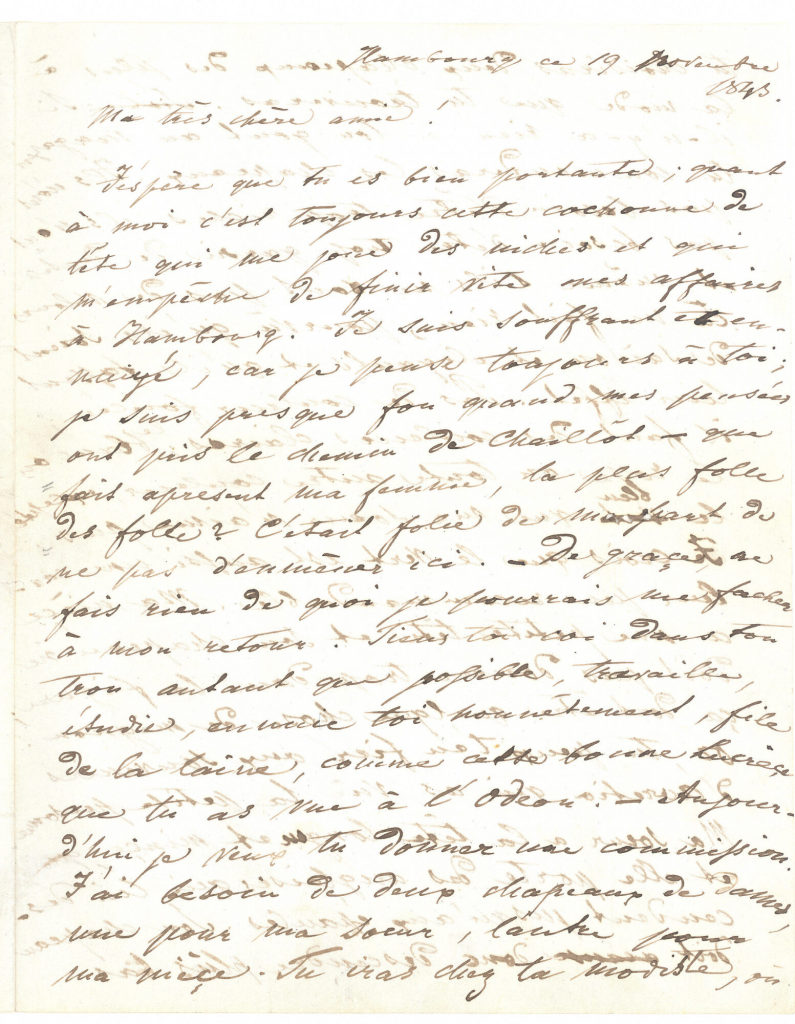 Hambourg ce 19 Novembre
1843.
Ma très chère amie !
J'espère que tu es bien portante ; quant
à moi c'est toujours cette cochonne de
tête qui me joue des niches et qui
m'empêche de finir vite mes affaires
à Hambourg. Je suis souffrant et en-
nuiyé, car je pense toujours à toi ;
je suis presque fou quand mes pensées
ont pris le chemin de Chaillôt – que
fait apresent ma femme, la plus folle
des folle? C'etait folie de ma part de
ne pas t'emmêner ici. – De graçe ne
fais rien de quoi je pourrais me facher
à mon retour. Tiens toi coi dans ton
trou autant que possible, travaille,
étudie, ennuie toi honnêtement, file
de la laine, comme cette bonne Lucrèçe
que tu as vue à l'Odeon. – Aujour-
d'hui je veux tu donner une commission.
J'ai besoin de deux chapeaux de dames,
une pour ma soeur, l'autre pour
ma nièçe. Tu iras chez ta modiste, ou